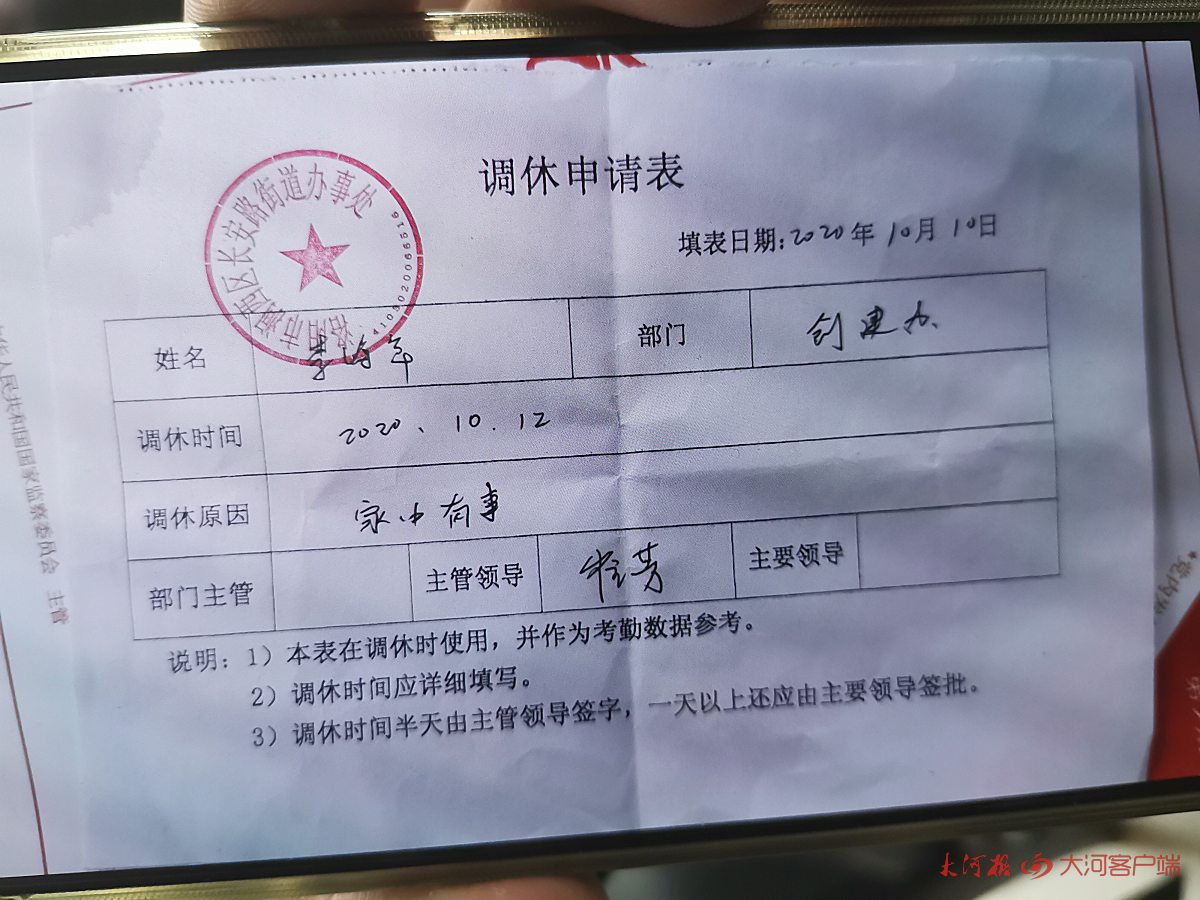 调休申请表
填表日期:2020年10月10日
洛阳市涧西区长安路街道办事处
4103020066516
姓名 部门 创建办
调休时间 2020、10.12
调休原因 家中有事
部门主管 主管领导 主要领导
说明：1）本表在调休时使用，并作为考勤数据参考。
2）调休时间应详细填写。
3）调休时间半天由主管领导签字，一天以上还应由主要领导签批。
人民共和国国家监察委员会 主管
大河报 大河客户端